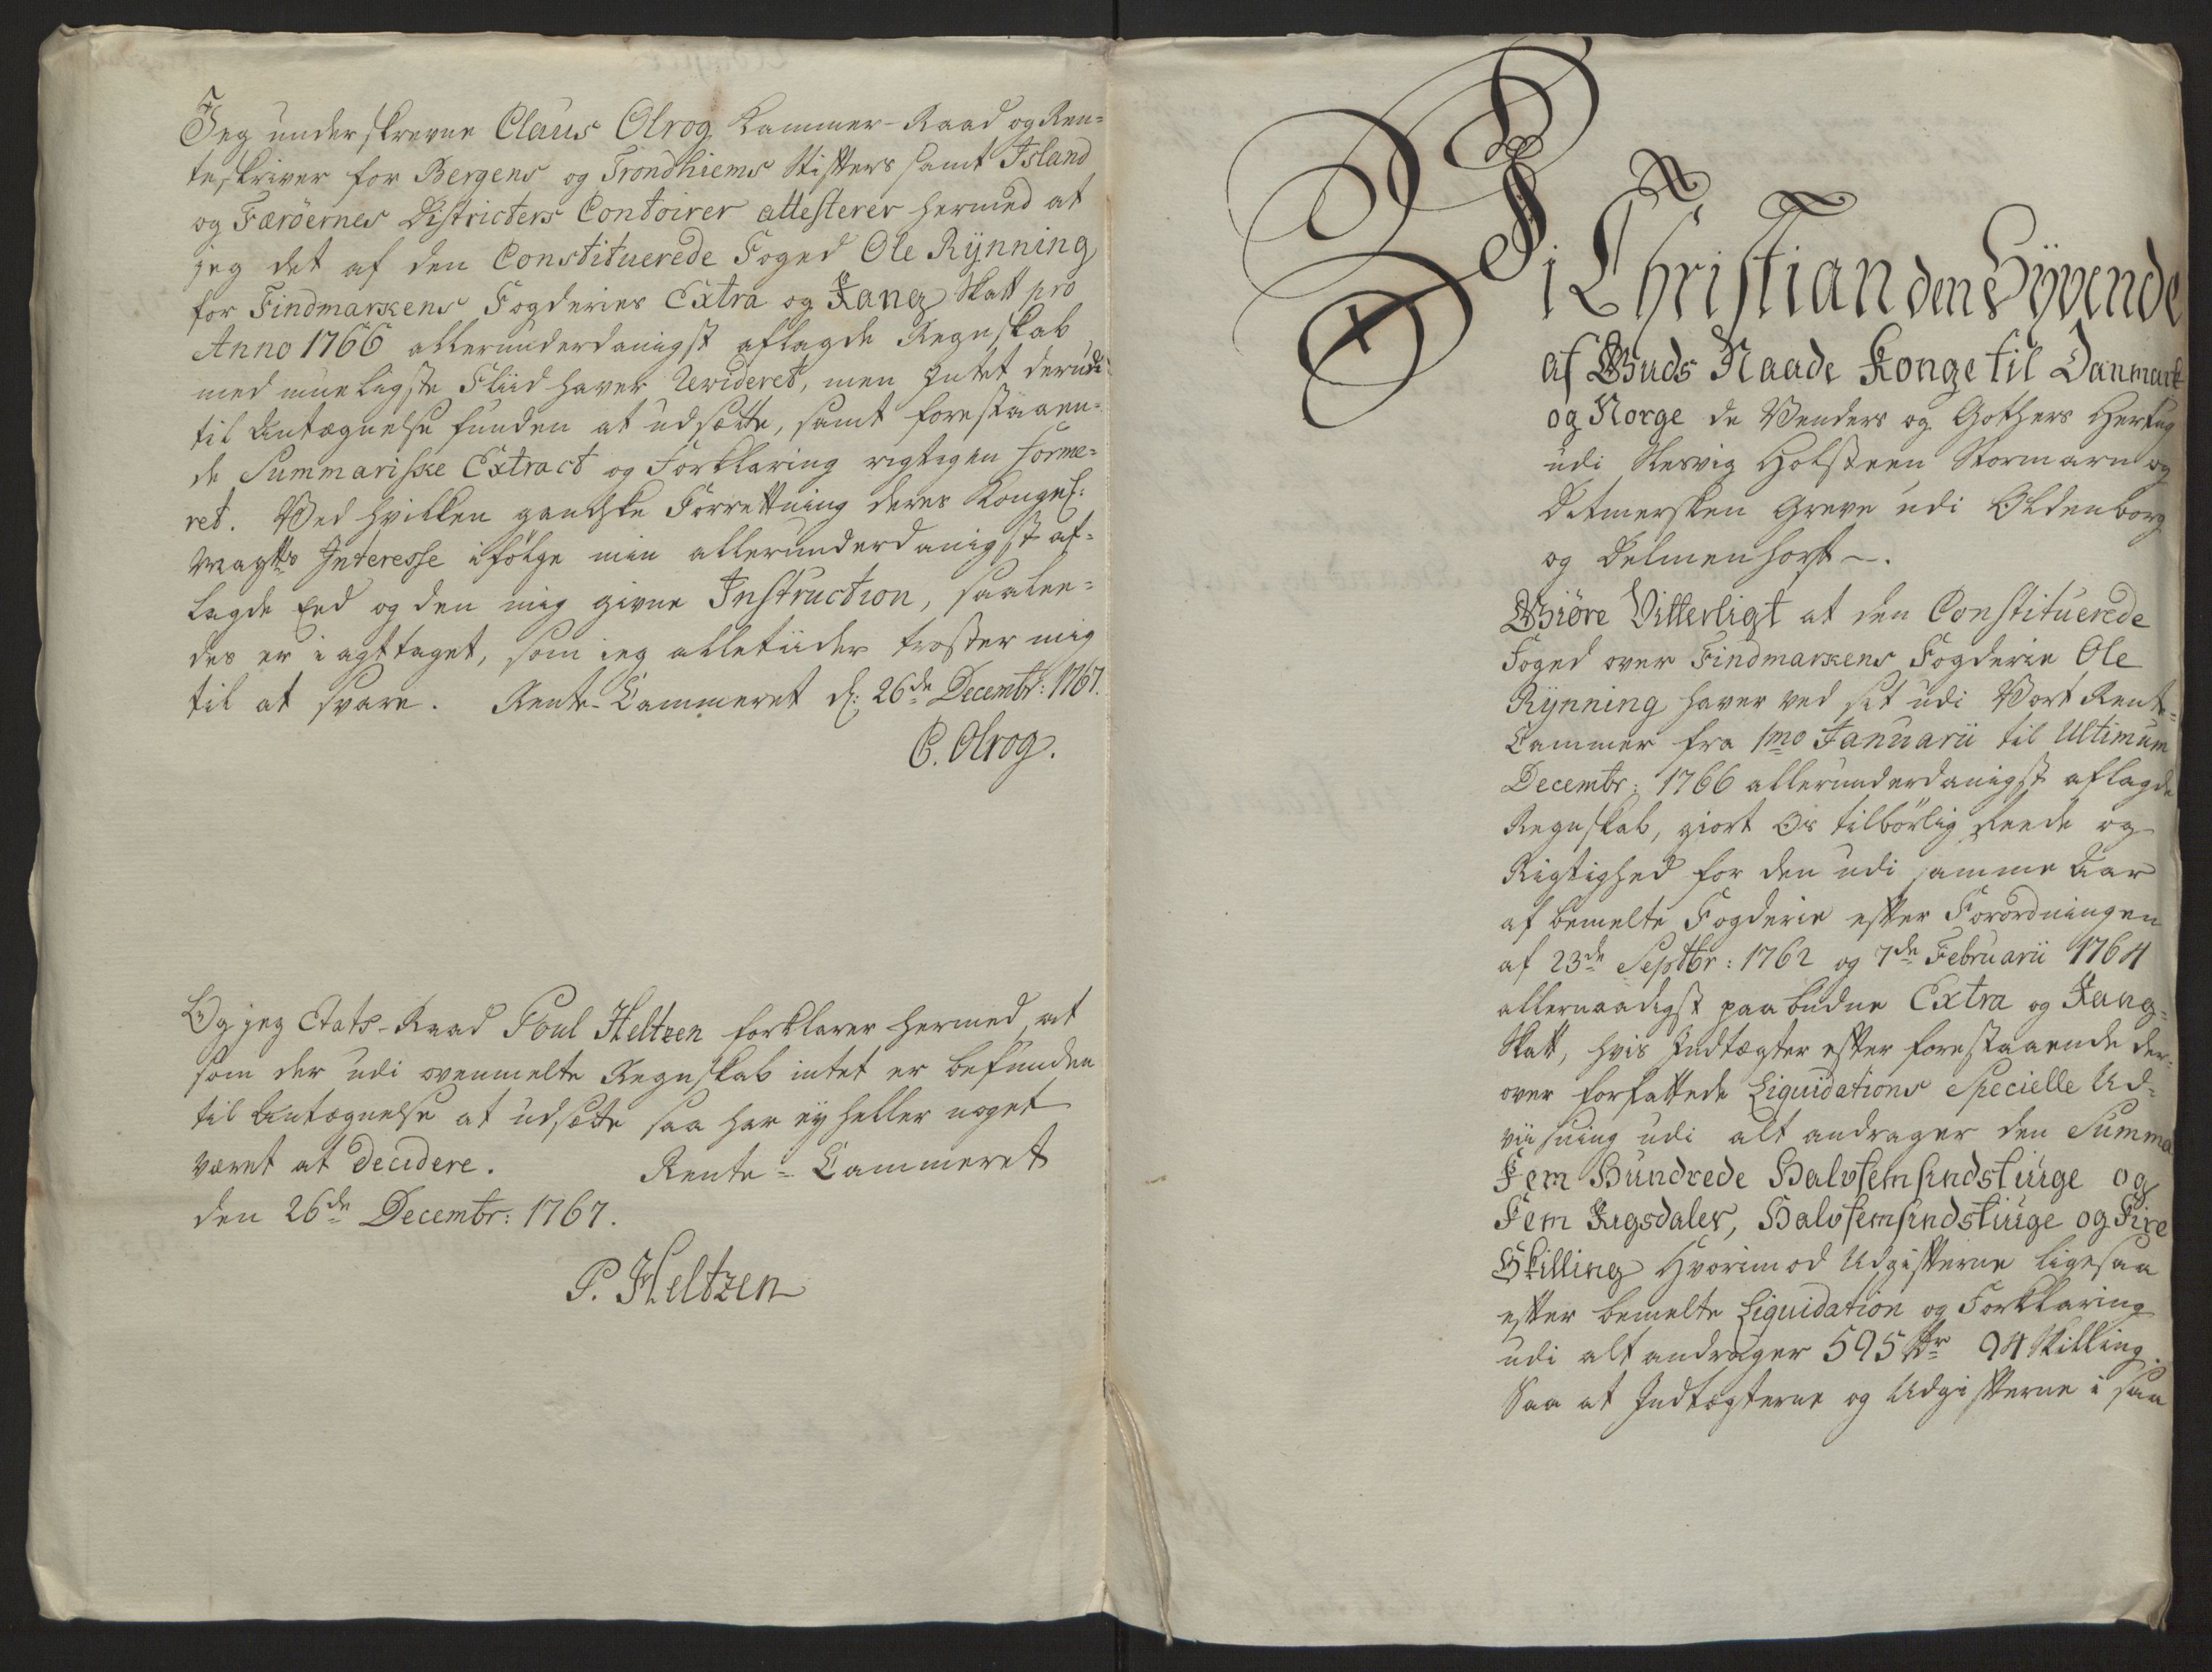 Jeg underskrevne Claus Olrog Kammer-Raad og Ren=
teskriver for Bergens og Trondhiems Stifters samt Island
og Færöernes Districters Contoirer attesterer hermed at
jeg det af den Constituerede Foged Ole Rÿnning
for Findmarkens Fogderies Extra og Rang Skatt pro
Anno 1766 allerunderdanigst aflagde Regnskab
med mueligste Fliid haver Revideret, men Intet derudi
til Antægnelse funden at udsætte, samt forestaaen=
de Summariske Extract og Forklaring rigtigen forme=
ret. Ved hvilken gandske Forrettning deres Kongel:
Maytts Interesse ifølge min allerunderdanigst af=
lagde Eed og den mig givne Instruction, saalee=
des er i agttaget, som jeg alletiider trøster mig
til at svare. Rente-Cammeret d: 26de Decembr: 1767.
C. Olrog.
Og jeg Etats-Raad Poul Heltzen forklarer hermed, at
som der udi ovenmelte Regnskab intet er befunden
til Antægnelse at udsætte saa har ej heller noget
været at Decidere. Rente-Cammeret
den 26de Decembr: 1767.
P. Heltzen
Vi Christian den Sÿvende
af Guds Naade Konge til Danmark
og Norge de Venders og Gothers Hertug
udi Slesvig Holsteen Stormarn og
Ditmersken Greve udi Oldenborg
og Delmenhorst ~.
Giøre Vitterligt at den Constituerede
Foged over Findmarkens Fogderie Ole
Rÿnning haver ved sit udi Vort Rente=
Cammer fra 1mo Januarii til Ultimum
Decembr: 1766 allerunderdanigst aflagde
Regnskab, giort Os tilbörlig Reede og
Rigtighed for den udi samme Aar
af bemelte Fogderie efter Forordningen
af 23de Septbr: 1762 og 7de Februarii 1764
allernaadigst paabudne Extra og Rang=
Skatt, hvis Indtægter efter forestaaende der=
over forfattede Liquidations Specielle Ud=
viisning udi alt andrager den Summa
Fem Hundrede Halvfemsindstiuge og
Fem Rigsdaler, Halvfemsindstiuge og Fire
Skilling Hvorimod Udgifterne ligesaa
efter bemelte Liquidation og Forklaring
udi alt andrager 595 Rdr 94 Skilling.
Saa at Indtægterne og Udgifterne i saa